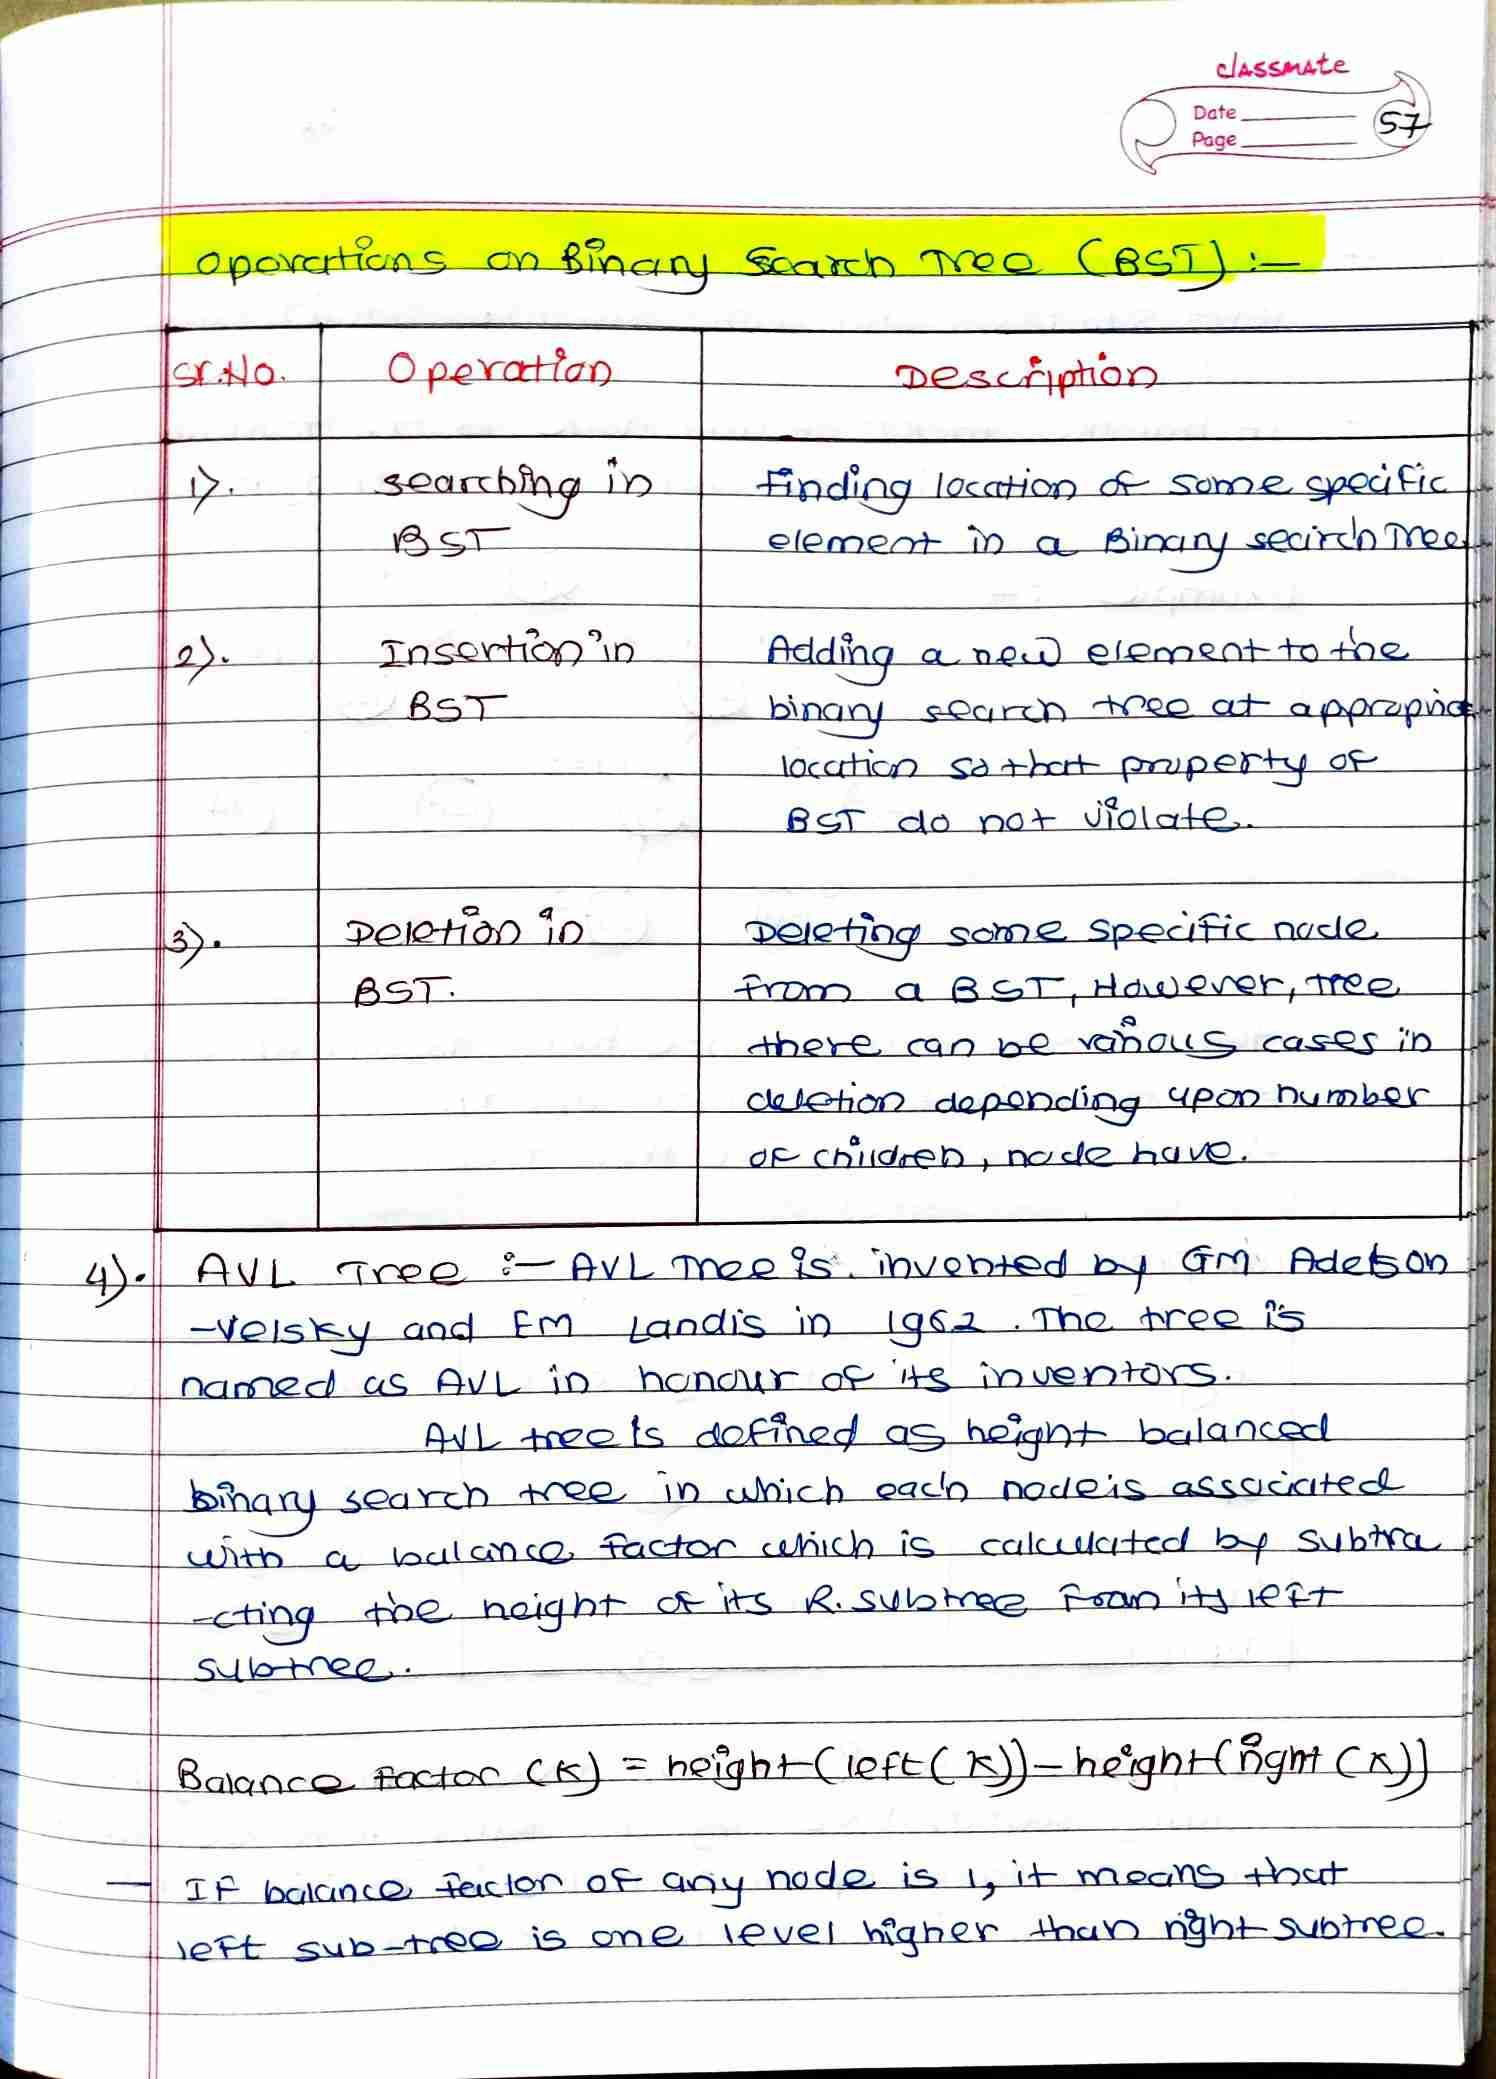 classmate
Date
Page
57
Operations on Binary Search Tree (BST) :-
Sr.No. Operation Description
1). searching in finding location of some specific
BST element in a Binary search Tree.
2). Insertion in Adding a new element to the
BST binary search tree at appropria
location so that property of
BST do not violate.
3). Deletion in Deleting some specific node
BST. from a BST, However, tree
there can be various cases in
deletion depending upon number
of children, node have.
4). AVL Tree :- AVL Tree is invented by GM Adelson
-Velsky and EM Landis in 1962. The tree is
named as AVL in honour of its inventors.
AVL tree is defined as height balanced
binary search tree in which each node is associated
with a balance factor which is calculated by subtra
-cting the height of its R. subtree from its left
subtree.
Balance factor (K) = height(left(K)) - height(right(K))
- If balance factor of any node is 1, it means that
left sub-tree is one level higher than right subtree.